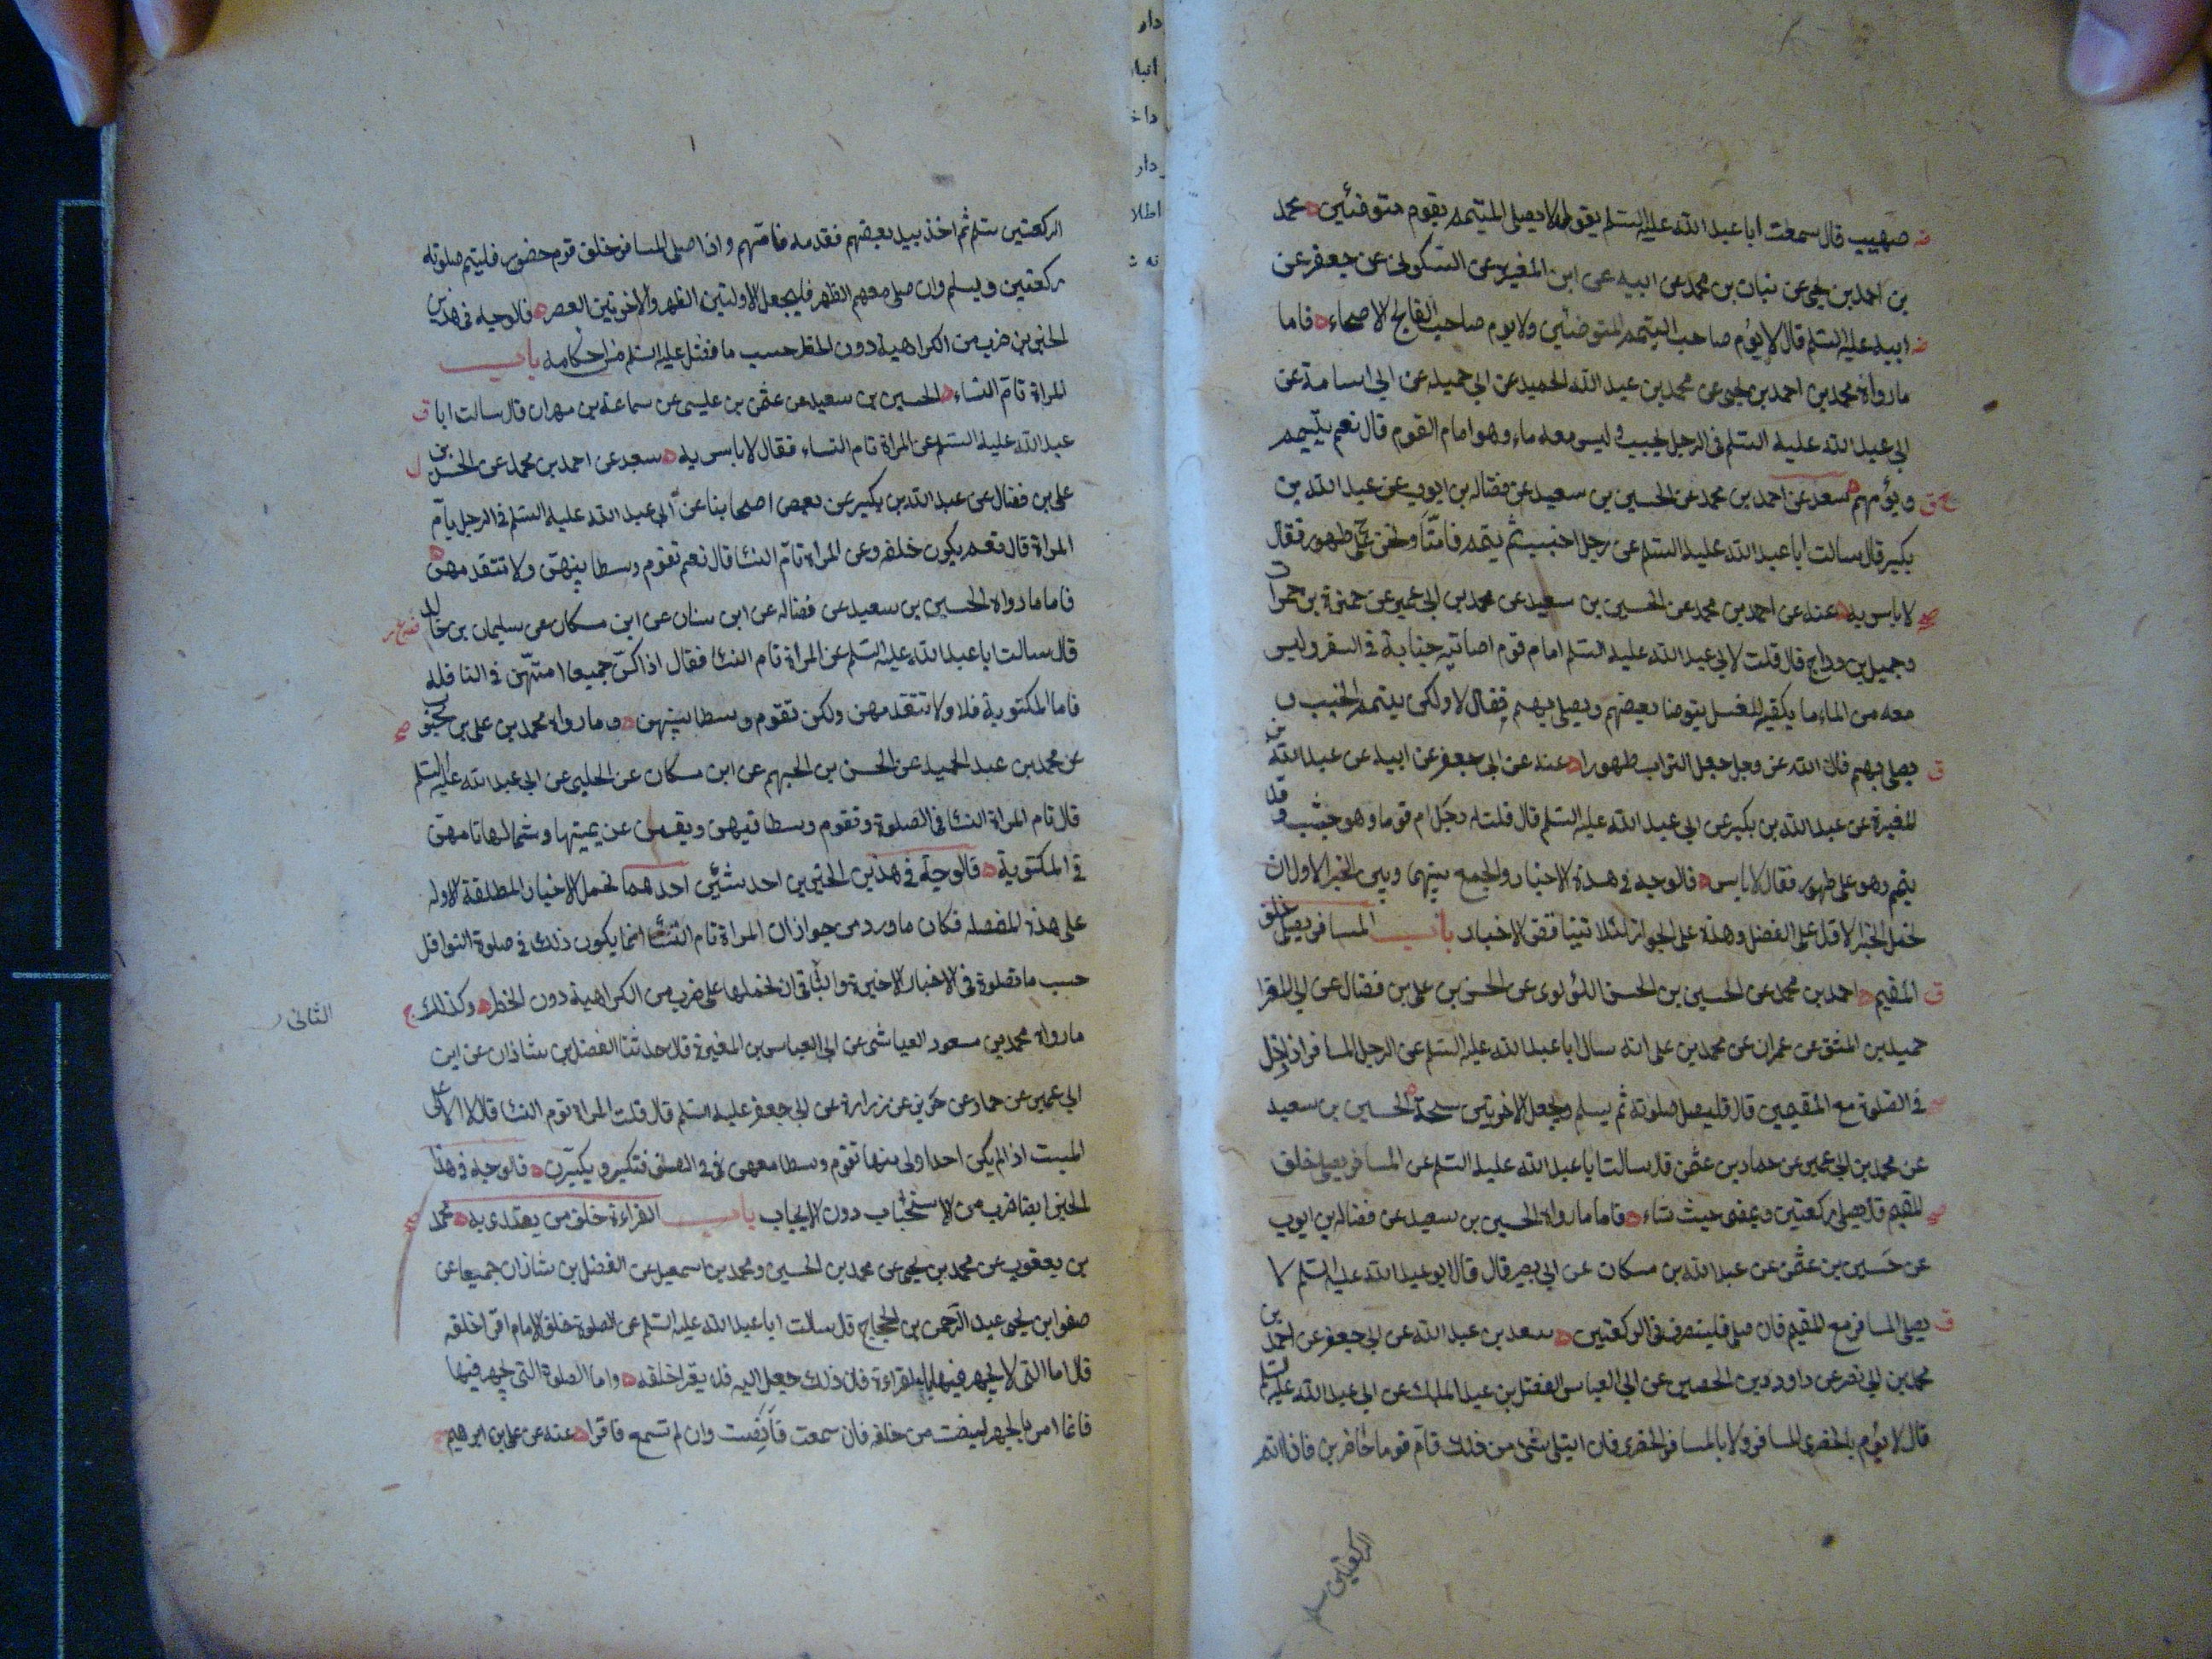 صهيب قال سمعت ابا عبد الله عليه السلم يقول لا يصلى المتيمم بقوم متوضئين محمد
بن احمد بن يحيى عن بنان بن محمد عن ابيه عن ابن المغيره عن السكونى عن جعفر عن
ابيه عليه السلم قال لا يؤم صاحب التيمم المتوضئين ولا يوم صاحب الفالج الاصحاء فاما
ما رواه محمد بن احمد بن يحيى عن محمد بن عبد الحميد عن ابى جميله عن ابى اسامة عن
ابى عبد الله عليه السلم فى الرجل يجنب وليس معه ماء وهو امام القوم قال نعم يتيمم
ويؤمهم سعد عن احمد بن محمد عن الحسين بن سعيد عن فضاله بن ايوب عن عبد الله بن
بكير قال سالت ابا عبد الله عليه السلم عن رجل اجنب ثم تيمم فامنا ونحن على طهور فقال
لا باس به عنه عن احمد بن محمد عن الحسين بن سعيد عن محمد بن ابى عمير عن حمزة بن حمران
وجميل بن دراج قال قلت لابى عبد الله عليه السلم امام قوم اصابته جنابة فى السفر وليس
معه من الماء ما يكفيه للغسل يتوضا بعضهم ويصلى بهم فقال لا ولكن يتيمم الجنب و
يصلى بهم فان الله عز وجل جعل التراب طهورا عنه عن ابى جعفر عن ابيه عن عبد الله بن
المغيرة عن عبد الله بن بكير عن ابى عبد الله عليه السلم قال قلت له رجل ام قوما وهو جنب وقد
تيمم وهم على طهور فقال لا باس فالوجه فى هذه الاخبار والجمع بينهما وبين الخبر الاول ان
نحمل الخبر الاول على الفضل وهذه على الجواز لئلا تتناقض الاخبار باب المسافر يصلى خلف
المقيم احمد بن محمد عن الحسين بن الحسن اللؤلوى عن الحسن بن على بن فضال عن ابى المغرا
حميد بن المثنى عن عمران عن محمد بن على انه سال ابا عبد الله عليه السلم عن الرجل المسافر اذا دخل
فى الصلوة مع المقيمين قال فليصل صلوته ثم يسلم ويجعل الاخريتين سبحة الحسين بن سعيد
عن محمد بن ابى عمير عن حماد بن عثمن قال سالت ابا عبد الله عليه السلم عن المسافر يصلى خلف
المقيم قال يصلى ركعتين ويمضى حيث شاء فاما ما رواه الحسين بن سعيد عن فضاله بن ايوب
عن حسين بن عثمن عن عبد الله بن مسكان عن ابى بصير قال قال ابو عبد الله عليه السلم لا
يصلى المسافر مع المقيم فان صلى فلينصرف فى الركعتين سعد بن عبد الله عن ابى جعفر عن احمد بن
محمد بن ابى نصر عن داود بن الحصين عن ابى العباس الفضل بن عبد الملك عن ابى عبد الله عليه السلم
قال لا يؤم الحضرى المسافر ولا المسافر الحضرى فان ابتلى بشئ من ذلك فام قوما حاضرين فاذا اتم
الركعتين سلم
الركعتين سلم ثم اخذ بيد بعضهم فقدمه فامهم واذا صلى المسافر خلف قوم حضور فليتم صلوته
ركعتين ويسلم وان صلى معهم الظهر فليجعل الاولتين الظهر والاخريتين العصر فالوجه فى هذين
الخبرين ضرب من الكراهية دون الحظر حسب ما فضل عليه السلم من احكامه باب
المراة تام النساء الحسين بن سعيد عن عثمن بن عيسى عن سماعة بن مهران قال سالت ابا
عبد الله عليه السلم عن المراة تام النساء فقال لا باس به سعد عن احمد بن محمد عن الحسن بن
على بن فضال عن عبد الله بن بكير عن بعض اصحابنا عن ابى عبد الله عليه السلم فى الرجل يام
المراة قال نعم يكون خلفه وعن المراة تام النسا قال نعم تقوم وسطا بينهن ولا تتقدمهن
فاما ما رواه الحسين بن سعيد عن فضاله عن ابن سنان عن ابن مسكان عن سليمان بن خالد
قال سالت ابا عبد الله عليه السلم عن المراة تام النسا فقال اذا كن جميعا امتهن فى النافله
فاما المكتوبة فلا ولا تتقدمهن ولكن تقوم وسطا بينهن وما رواه محمد بن على بن محبوب
عن محمد بن عبد الحميد عن الحسن بن الجهم عن ابن مسكان عن الحلبى عن ابى عبد الله عليه السلم
قال تام المراة النسا فى الصلوة وتقوم وسطا بينهن ويقمن عن يمينها وشمالها تامهن
فى المكتوبة فالوجه فى هذين الخبرين احد شيئين احدهما نحمل الاخبار المطلقة الاوله
على هذه المفصله فكان ما ورد من جواز ان المراة تام النسا انما يكون ذلك فى صلوة النوافل
حسب ما فصلوه فى الاخبار الاخيرة والثانى ان نحملها على ضرب من الكراهية دون الحظر وكذلك
الثانى
ما رواه محمد بن مسعود العياشى عن ابى العباس بن المغيرة قال حدثنا الفضل بن شاذان عن ابن
ابى عمير عن حماد عن حريز عن زرارة عن ابى جعفر عليه السلم قال قلت المراة توم النسا قال لا الا على
الميت اذا لم يكن احد اولى منها تقوم وسطا معهن فى الصف فتكبر ويكبرن فالوجه فى هذا
الخبر ايضا ضرب من الاستحباب دون الايجاب باب القراءة خلف من يقتدى به محمد
بن يعقوب عن محمد بن يحيى عن محمد بن الحسين ومحمد بن اسمعيل عن الفضل بن شاذان جميعا عن
صفوان بن يحيى عبد الرحمن بن الحجاج قال سالت ابا عبد الله عليه السلم عن الصلوة خلف الامام اقرا خلفه
قال اما التى لا يجهر فيها بالقراءة فان ذلك جعل اليه فلا يقرا خلفه واما الصلوة التى يجهر فيها
فانما امر بالجهر لينصت من خلفه فان سمعت فانصت وان لم تسمع فاقرا عنه عن على بن ابرهيم